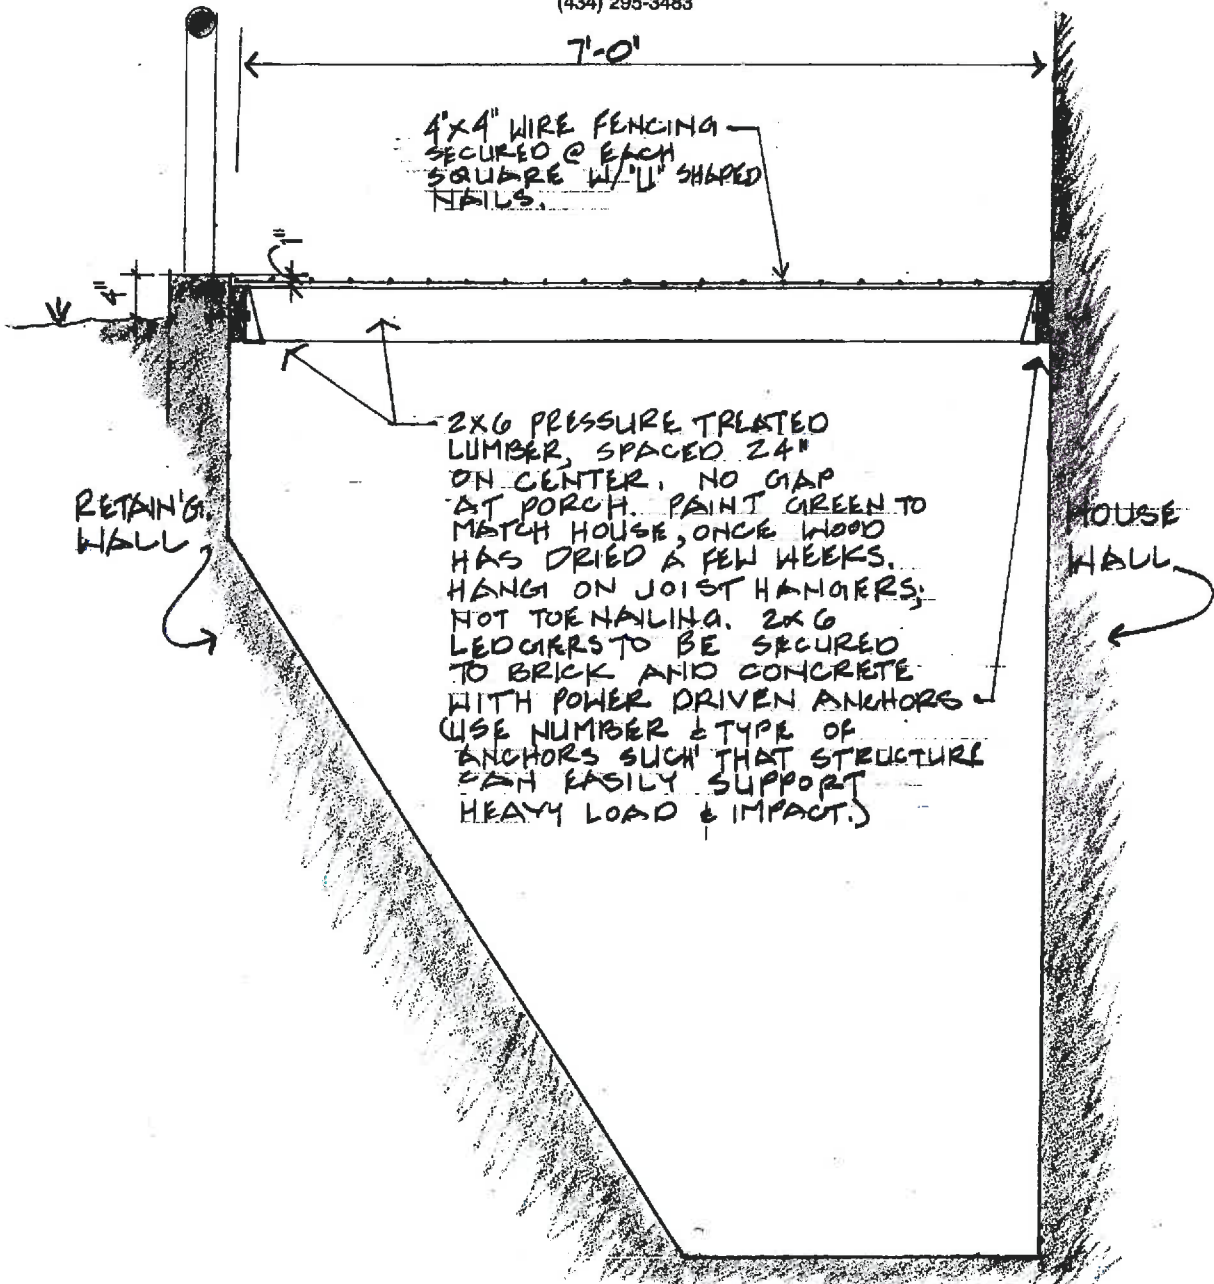 (434) 295-3483
7'-0"
4"X4" WIRE FENCING
SECURED @ EACH
SQUARE W/"U" SHAPED
NAILS.
1"
4"
2X6 PRESSURE TREATED
LUMBER, SPACED 24"
ON CENTER. NO GAP
AT PORCH. PAINT GREEN TO
MATCH HOUSE, ONCE WOOD
HAS DRIED A FEW WEEKS.
HANG ON JOIST HANGERS;
NOT TOENAILING. 2X6
LEDGERS TO BE SECURED
TO BRICK AND CONCRETE
WITH POWER DRIVEN ANCHORS
(USE NUMBER & TYPE OF
ANCHORS SUCH THAT STRUCTURE
CAN EASILY SUPPORT
HEAVY LOAD & IMPACT.)
RETAIN'G
WALL
HOUSE
WALL